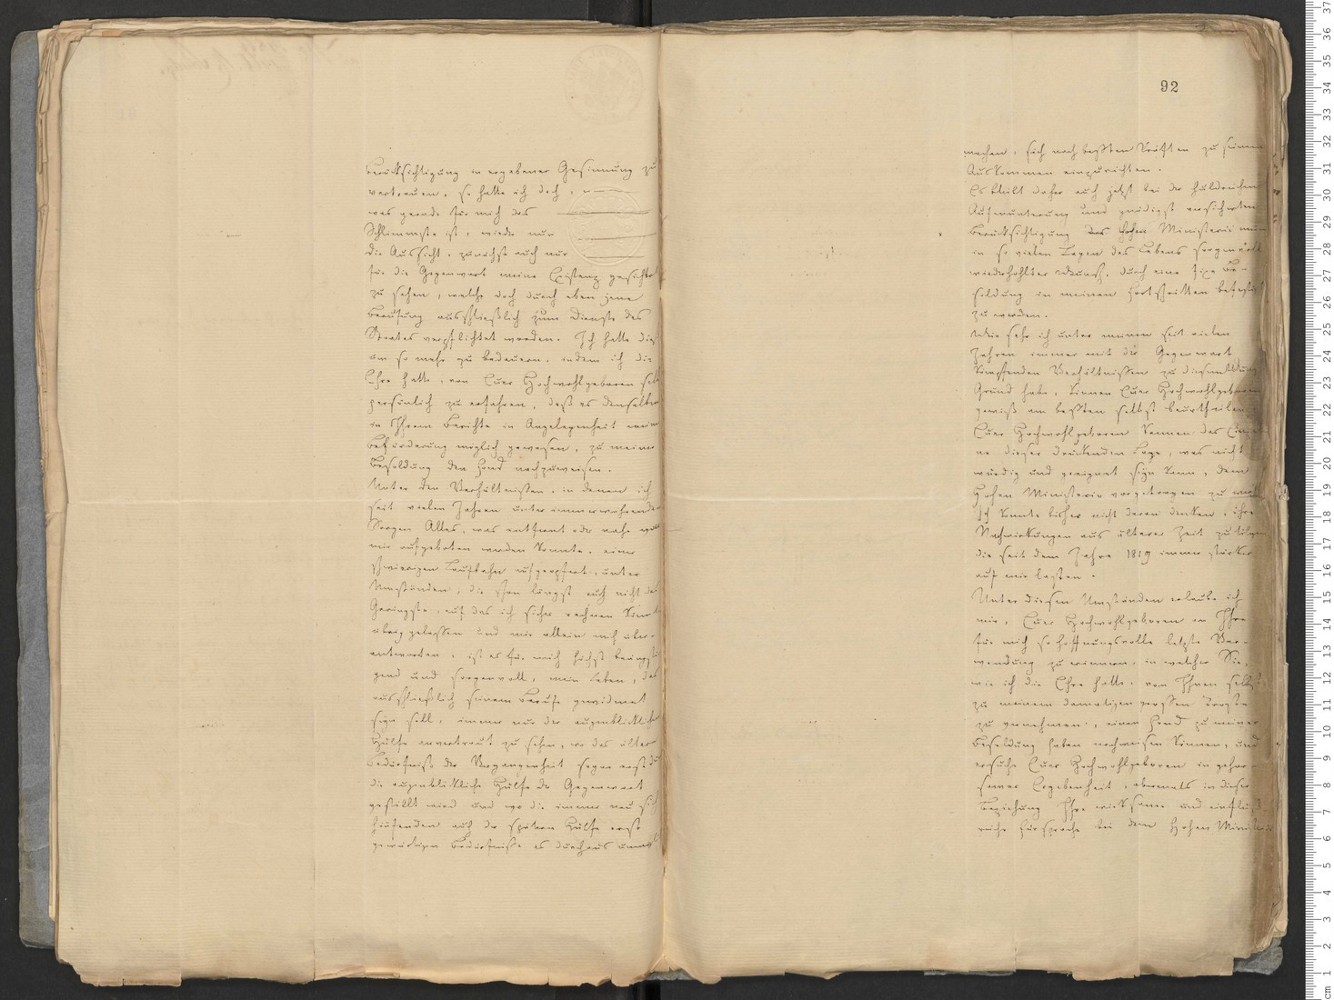 Berücksichtigung in ergebener Gesinnung zu
vertrauen, so hatte ich doch,
was gerade für mich das
Schlimmste ist, wieder nur
die Aussicht, zunächst auch nur
für die Gegenwart meine Existenz gesichert
zu sehen, welche doch durch eben jene
Berufung ausschließlich zum Dienste des
Staates verpflichtet worden. Ich hatte dies
um so mehr zu bedauern, indem ich die
Ehre hatte, von Euer Hochwohlgeboren selbst
persönlich zu erfahren, daß es demselben
in Ihrem Berichte in Angelegenheit meiner
Beförderung möglich gewesen, zu meiner
Besoldung den Fond nachzuweisen.
Unter den Verhältnissen, in denen ich
seit vielen Jahren unter immerwährenden
Sorgen Alles, was entfernt oder nahe von
mir aufgeboten werden konnte, einer
schwierigen Laufbahn aufgeopfert, unter
Umständen, die schon längst auch nicht das
Geringste, auf das ich sicher rechnen könnte
übrig gelassen und mir allein mich über-
antworten, ist es für mich höchst beängsti
gend und sorgenvoll, mein Leben, das
ausschließlich seinem Berufe gewidmet
seyn soll, immer nur der augenblicklichen
Hülfe anvertraut zu sehen, wo das ältere
Bedürfniß der Vergangenheit gegen
die augenblickliche Hülfe der Gegenwart
gestellt wird und wo die immer neu sich
häufenden auf die spätere Hülfe erst
Bedürfnisse es durchaus unmögl
92
machen, sich nach besten Kräften zu seinem
Auskommen einzurichten.
Es bleibt daher auch jetzt bei der huldreichen
Aufmunterung und gnädigst versicherten
Berücksichtigung des hohen Ministerii mein
in so vielen Tagen des Lebens sorgenvoll
wiederhohlter Wunsch, durch eine fixe Be-
soldung in meinen Fortschritten befestigt
zu werden.
Wie sehr ich unter meinen seit vielen
Jahren immer mit der Gegenwart
kämpfenden Verhältnissen zu diesem
Grund habe, können Euer Hochwohlgeboren
gewiß am besten selbst beurtheilen.
Euer Hochwohlgeboren kennen das
ne dieser drückenden Lage, was nicht
würdig und geeignet seyn kann, dem
Hohen Ministerio vorgetragen zu
Ich konnte bisher nicht daran denken, ihre
Nachwirkungen aus älterer Zeit zu tilgen
die seit dem Jahre 1819 immer stärker
auf mir lasten.
Unter diesen Umständen erlaube ich
mir, Euer Hochwohlgeboren an Ihre
für mich so hoffnungsvolle letzte Ver-
wendung zu erinnern, in welcher Sie,
wie ich die Ehre hatte, von Ihnen selbst
zu meinem damaligen großen Troste
zu vernehmen, einen Fond zu meiner
Besoldung haben nachweisen können, und
ersuche Euer Hochwohlgeboren in gehor-
samer Ergebenheit, abermals in dieser
Beziehung Ihre wirksame und einfluß
reiche Fürsprache bei dem Hohen Ministerio